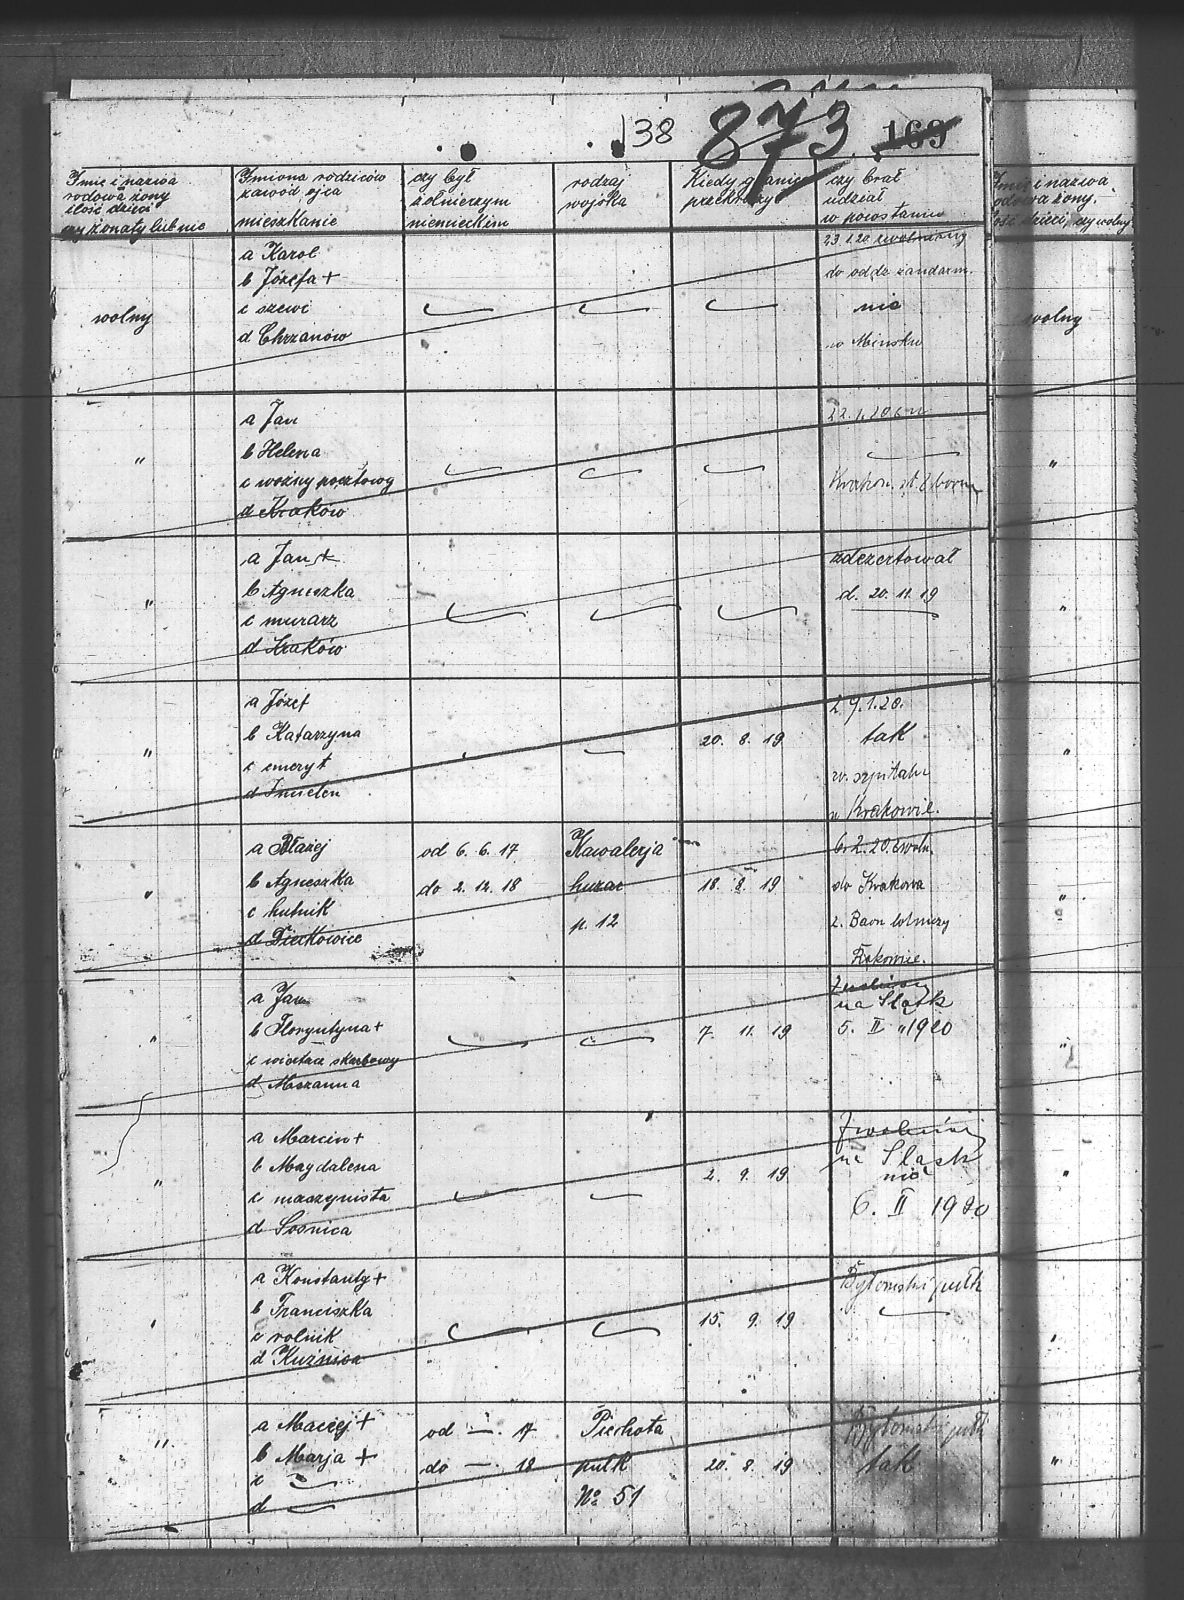 138 873 169
Imię i nazwa
rodowa żony
ilość dzieci
czy żonaty lub nie
Imiona rodziców
zawód ojca
mieszkanie
czy był
żołnierzym
niemieckim
rodzaj
wojska
Kiedy granicę
przekroczył
czy brał
udział
w powstaniu
Imię i nazwa
rodowa żony,
ilość dzieci, czy wolny
wolny
a Karol
b Józefa +
c szewc
d Chrzanów
23.1.20 zwolniony
do oddz żandarm.
nie
w Mińsku
wolny
"
a Jan
b Helena
c woźny pocztowy
d Kraków
22.1.20
"
"
a Jan +
b Agnieszka
c murarz
d Kraków
zdezertował
d. 20. 11. 19
"
"
a Józef
b Katarzyna
c emeryt
d Imielin
20. 8. 19
29.1.20.
tak
w szpitalu
w Krakowie.
"
"
a Błażej
b Agnieszka
c hutnik
d
od 6. 6. 17
do 2. 12. 18
Kawalerja
huzar
p. 12
18. 8. 19
6. 2. 20 zwoln.
do Krakowa
2. Baon lotniczy
"
"
a Jan
b Florentyna +
c skarbowy
d Mszanna
7. 11. 19
na Śląsk
5. II 1920
"
"
a Marcin +
b Magdalena
c maszynista
d Sośnica
2. 9. 19
na Śląsk
nie
6. II 1920
"
"
a Konstanty +
b Franciszka
c rolnik
d Kuźnica
15. 9. 19
Bytomski pułk
"
"
a Maciej +
b Marja +
c
d
od — . 17
do — . 18
Piechota
pułk
No 51
20. 8. 19
Bytomski pułk
tak
"